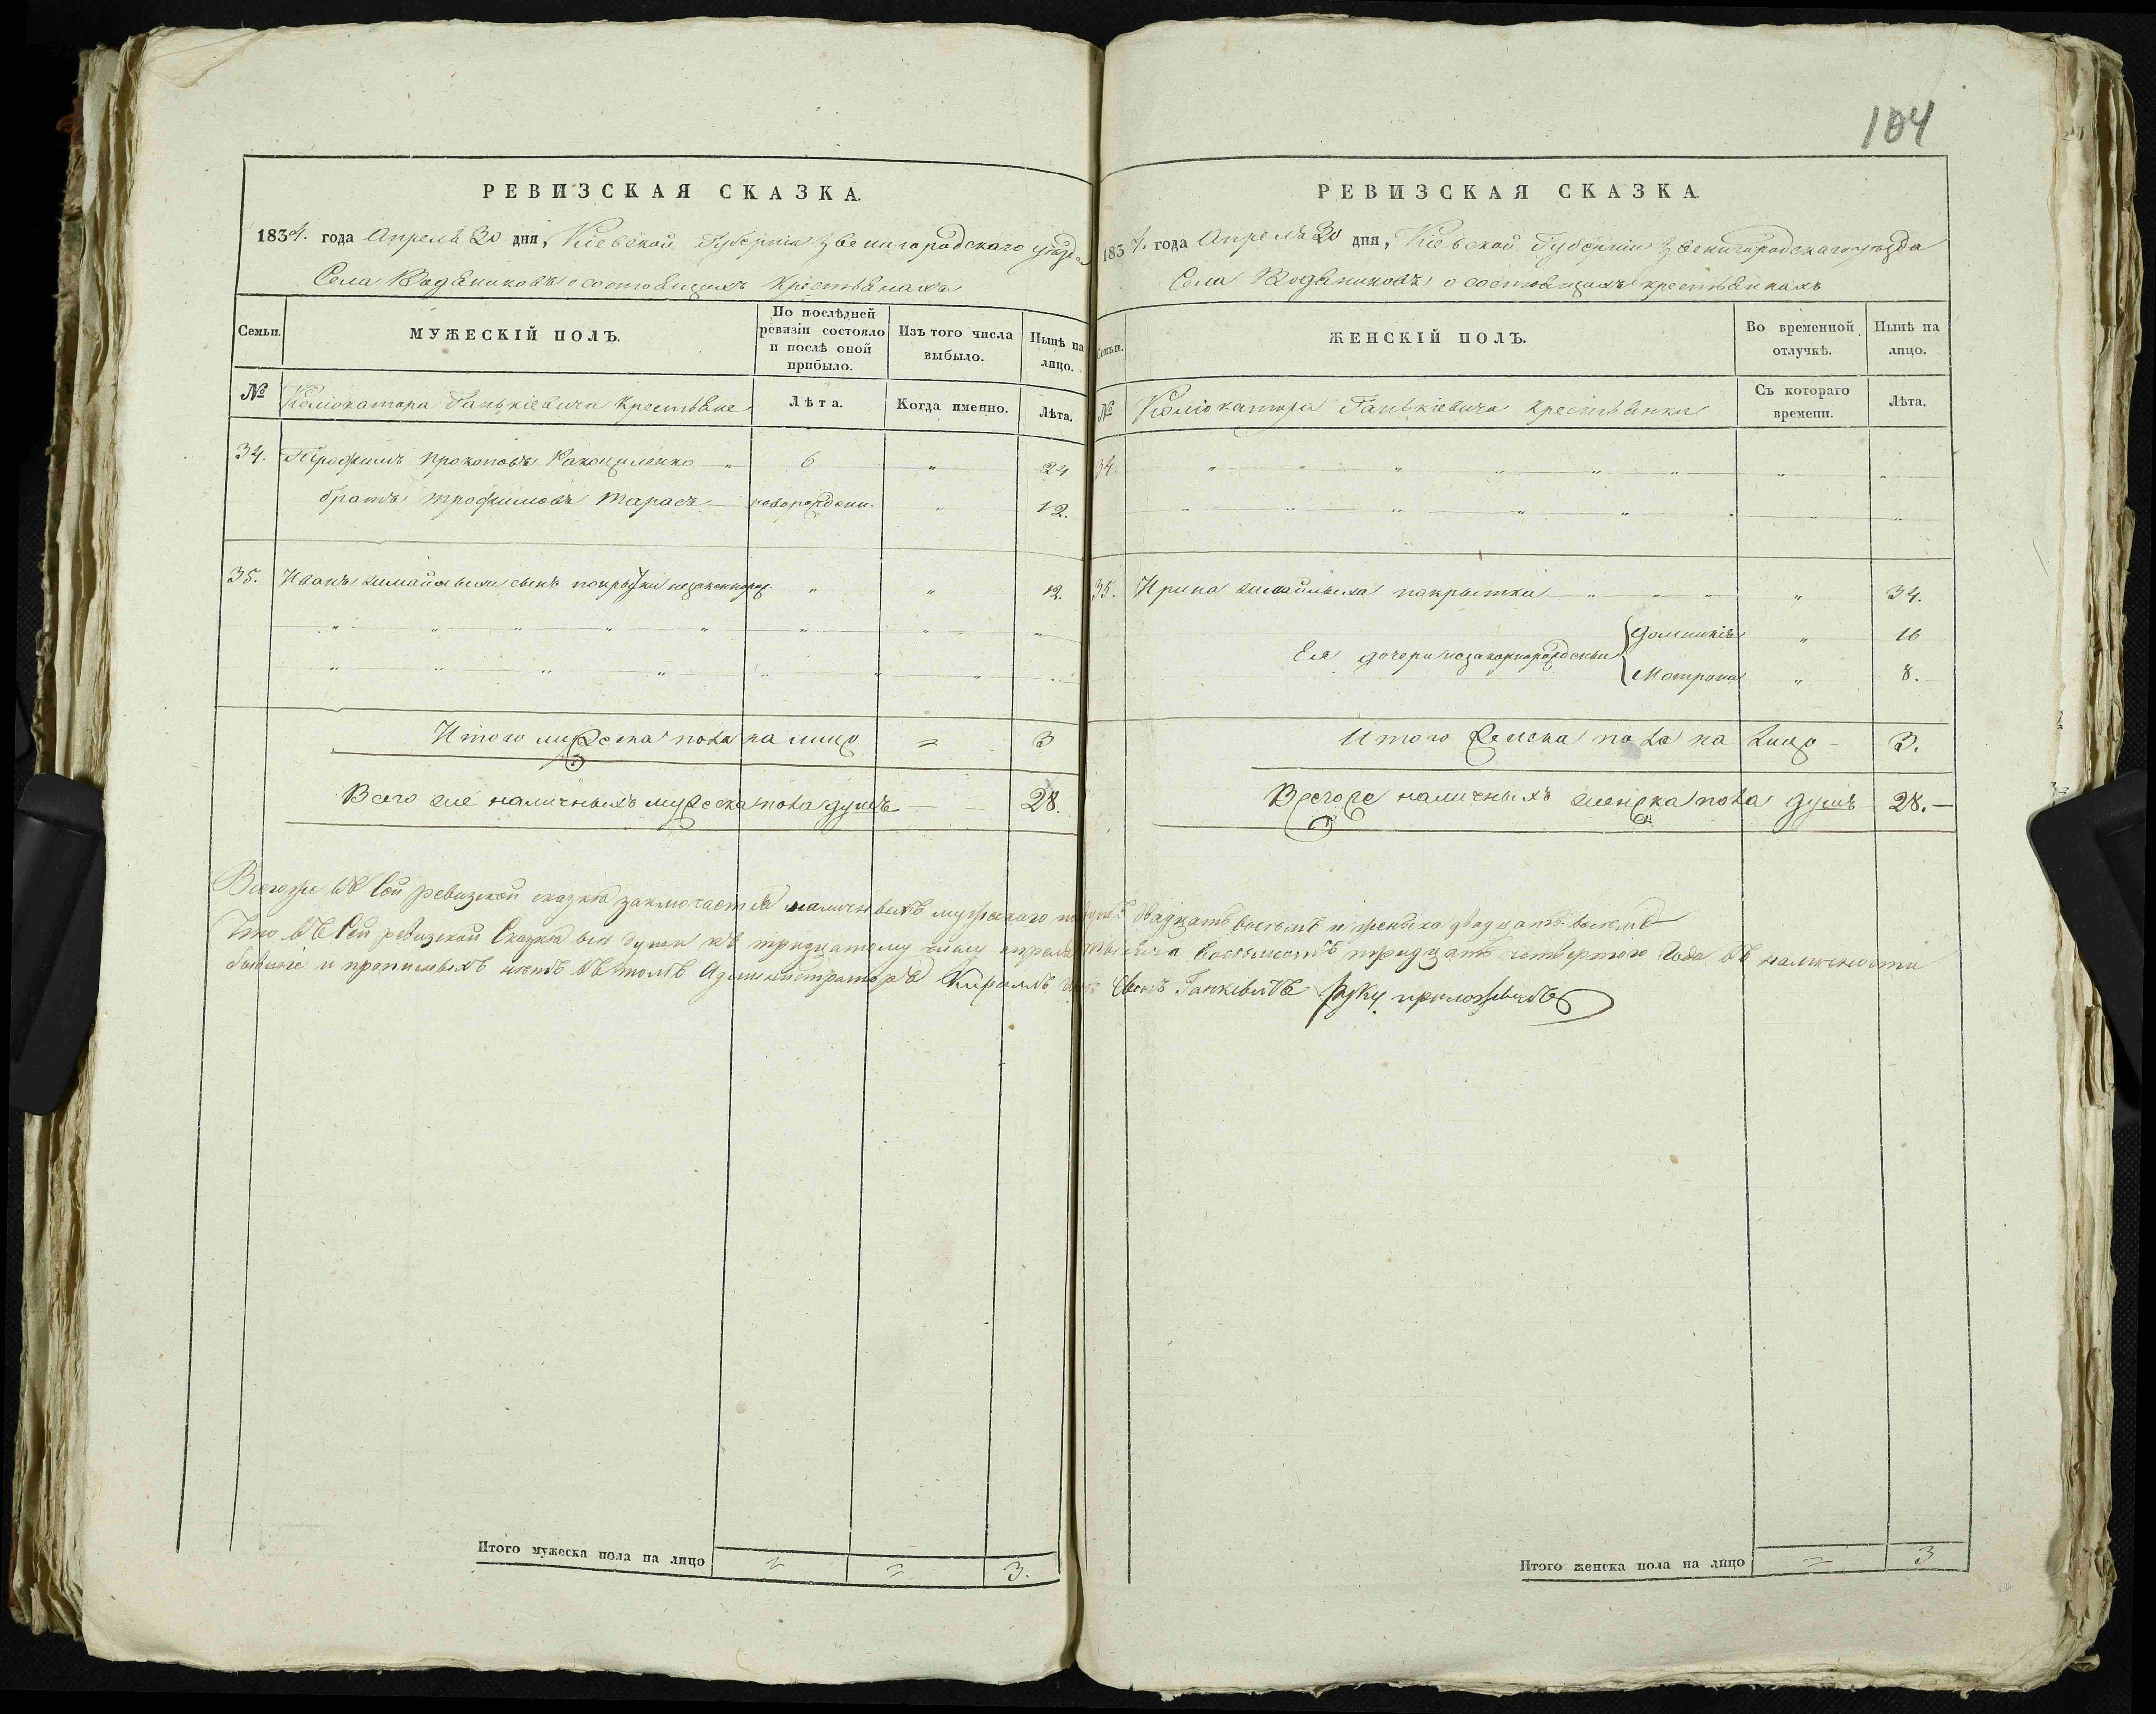 104
РЕВИЗСКАЯ СКАЗКА.
1834. года Апреля 30 дня, Кіевской Губерніи Звенигородскаго уезда
Села Водяниковъ о состоящихъ крестьянахъ
Семьи.
МУЖЕСКІЙ ПОЛЪ.
По послѣдней ревизіи состояло и послѣ оной прибыло.
Изъ того числа выбыло.
Нынѣ на лицо.
№
Ганькіевича крестьяне
Лѣта.
Когда именно.
Лѣта.
34. Трофимъ Прокоповъ 〃 6 〃 24
братъ трофимовъ Тарасъ новорожденн. 〃 12.
35. Иванъ сынъ покрытки незаконнорож. 〃 〃 12.
Итого мужеска пола на лицо = 3
Всего же наличныхъ мужеска пола душъ 28.
РЕВИЗСКАЯ СКАЗКА.
1834. года Апреля 30 дня, Кіевской Губерніи Звенигородскаго уезда
Села Водяниковъ о состоящихъ крестьянкахъ
Семьи.
ЖЕНСКІЙ ПОЛЪ.
Во временной отлучкѣ.
Нынѣ на лицо.
№
Ганькіевича крестьянки
Съ котораго времени.
Лѣта.
34.
35. Ирина покрытка 〃 〃 〃 〃 34.
Ея дочери незаконнорожденны { Домникія 〃 16
Мотрона 〃 8.
Итого женска пола на лицо 3.
Всего же наличныхъ женска пола душъ 28.
Всего же въ сей ревизской сказке заключается наличныхъ мужескаго двадцать восемъ и женска двадцать восемъ
Что въ Сей ревизской Сказке все души къ тридцатому числу апреля восемьсотъ тридцать четвертого Года въ наличности
и прописныхъ нетъ въ томъ Администраторъ Кириллъ Ганкевичъ руку приложилъ
Итого мужеска пола на лицо = = 3.
Итого женска пола на лицо = 3